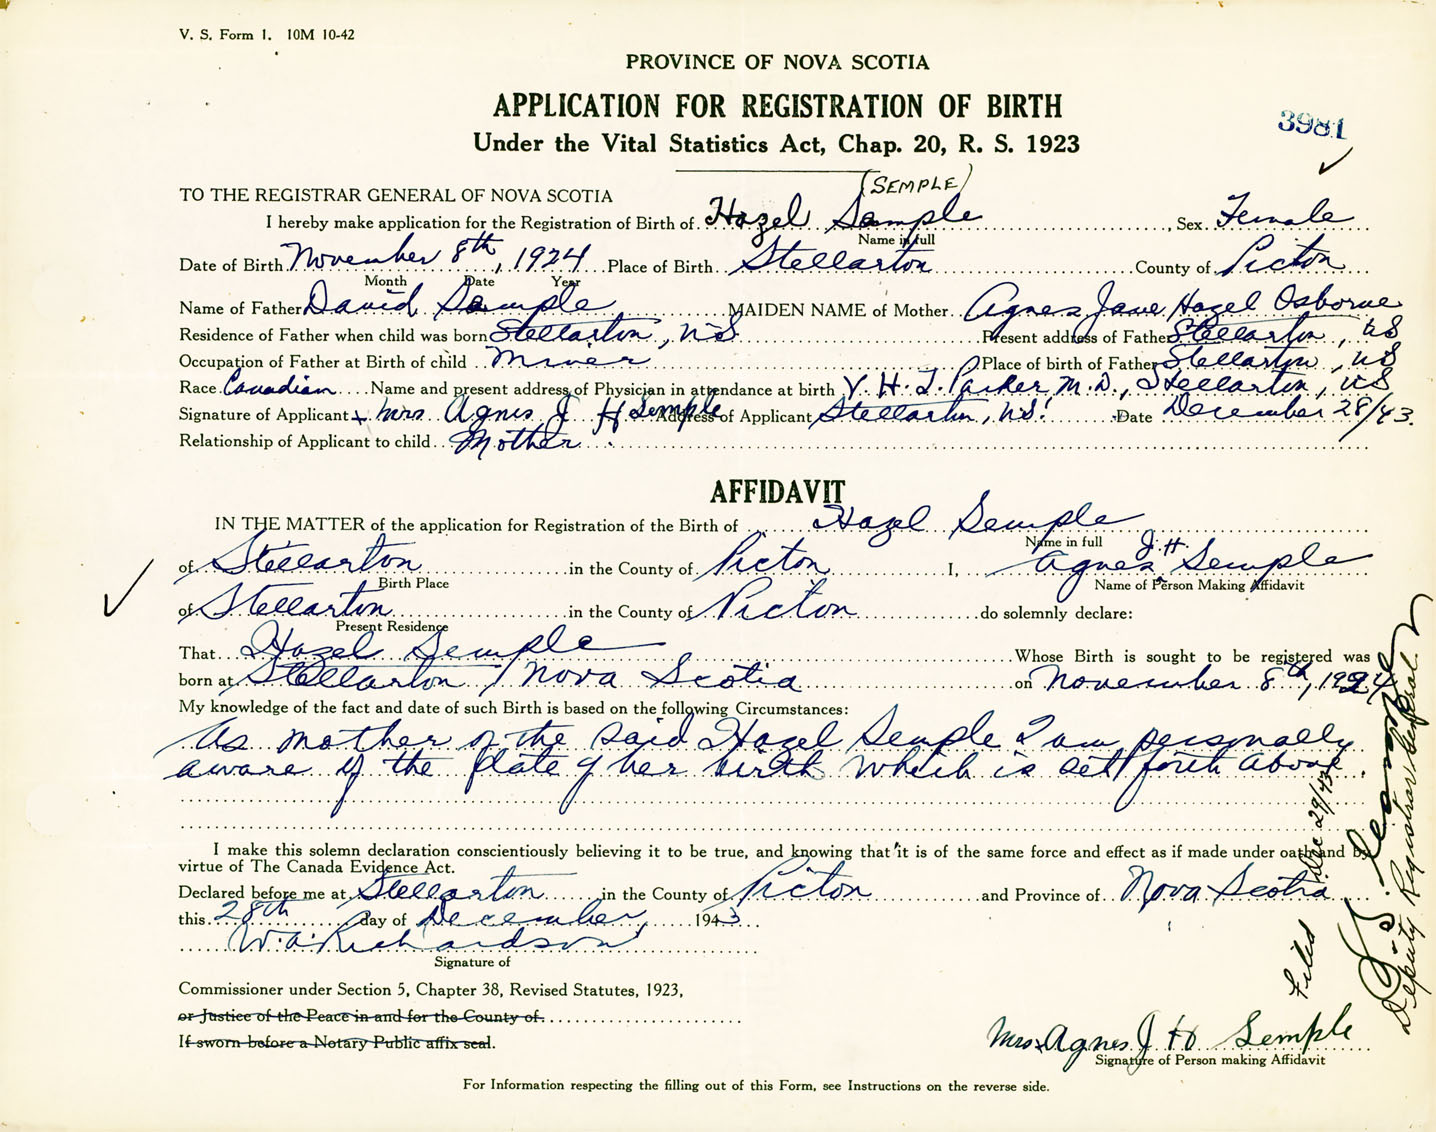 V. S. Form 1. 10M 10-42
PROVINCE OF NOVA SCOTIA
APPLICATION FOR REGISTRATION OF BIRTH
3981
Under the Vital Statistics Act, Chap. 20, R. S. 1923
(SEMPLE)
TO THE REGISTRAR GENERAL OF NOVA SCOTIA
I hereby make application for the Registration of Birth of Hazel Semple, Sex Female
Name in full
Date of Birth November 8th, 1924 Place of Birth Stellarton County of Picton
Month Date Year
Name of Father David Semple MAIDEN NAME of Mother Agnes Jane Hazel Osborne
Residence of Father when child was born Stellarton, NS Present address of Father Stellarton, NS
Occupation of Father at Birth of child Miner Place of birth of Father Stellarton, NS
Race Canadian Name and present address of Physician in attendance at birth V. H. T. Parker, M.D., Stellarton, NS
Signature of Applicant x Mrs Agnes J H Semple Address of Applicant Stellarton, NS. Date December 28/43.
Relationship of Applicant to child Mother
AFFIDAVIT
IN THE MATTER of the application for Registration of the Birth of Hazel Semple
Name in full
of Stellarton in the County of Picton I, Agnes J.H. Semple
Birth Place Name of Person Making Affidavit
of Stellarton in the County of Picton do solemnly declare:
Present Residence
That Hazel Semple Whose Birth is sought to be registered was
born at Stellarton, Nova Scotia on November 8th, 1924
My knowledge of the fact and date of such Birth is based on the following Circumstances:
As mother of the said Hazel Semple I am personally
aware of the date of her birth which is set forth above.
I make this solemn declaration conscientiously believing it to be true, and knowing that it is of the same force and effect as if made under oath and by
virtue of The Canada Evidence Act.
Declared before me at Stellarton in the County of Picton and Province of Nova Scotia
this 28th day of December, 1943
W. A. Richardson
Signature of
Commissioner under Section 5, Chapter 38, Revised Statutes, 1923,
or Justice of the Peace in and for the County of
If sworn before a Notary Public affix seal.
Mrs. Agnes J H Semple
Signature of Person making Affidavit
For Information respecting the filling out of this Form, see Instructions on the reverse side.
Filed Dec 29/43
Deputy Registrar General